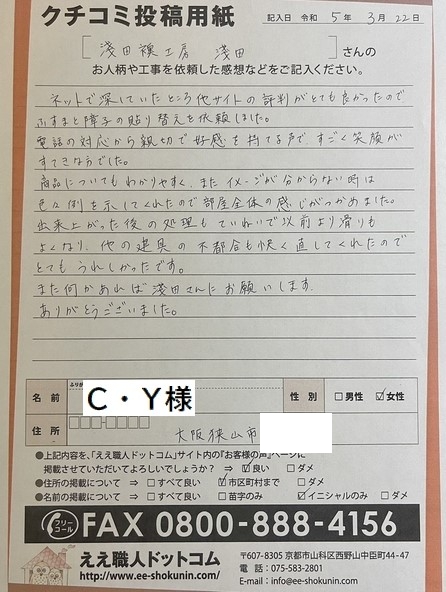 クチコミ投稿用紙 記入日 令和 5年 3月 22日
[淺田襖工房 淺田]さんの
お人柄や工事を依頼した感想などをご記入ください。
ネットで探していたところ他サイトの評判がとても良かったので
ふすまと障子の貼り替えを依頼しました。
電話の対応から親切で好感を持てる声で すごく笑顔が
すてきな方でした。
商品についてもわかりやすく、また イメージが分からない時は
色々例を示してくれたので部屋全体の感じがつかめました。
出来上がった後の処理もていねいで以前より滑りも
よくなり、他の建具の不都合も快く直してくれたので
とてもうれしかったです。
また何かあれば淺田さんにお願いします。
ありがとうございました。
名前 ふりがな C・Y様 性別 □男性 ☑女性
住所 大阪狭山市
●上記内容を、「ええ職人ドットコム」サイト内の『お客様の声』ページに
掲載させていただいてよろしいでしょうか? ⇒ ☑良い □ダメ
●住所の掲載について ⇒ □すべて良い ☑市区町村まで □ダメ
●名前の掲載について ⇒ □すべて良い □苗字のみ ☑イニシャルのみ □ダメ
フリーコール FAX 0800-888-4156
ええ職人ドットコム
http://www.ee-shokunin.com/
〒607-8305 京都市山科区西野山中臣町44-47
電話:075-583-2801
E-mail:info@ee-shokunin.com